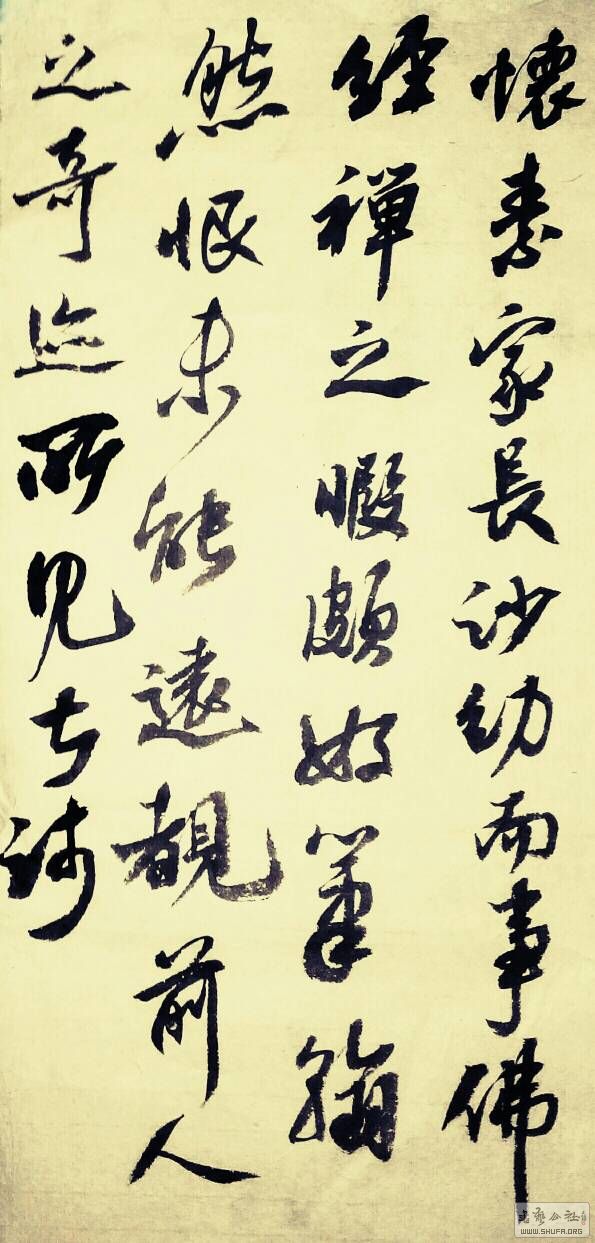 懷素家長沙幼而事佛
經禪之暇頗好筆翰
然恨未能遠覩前人
之奇迹所見甚淺
WWW.SHUFA.ORG